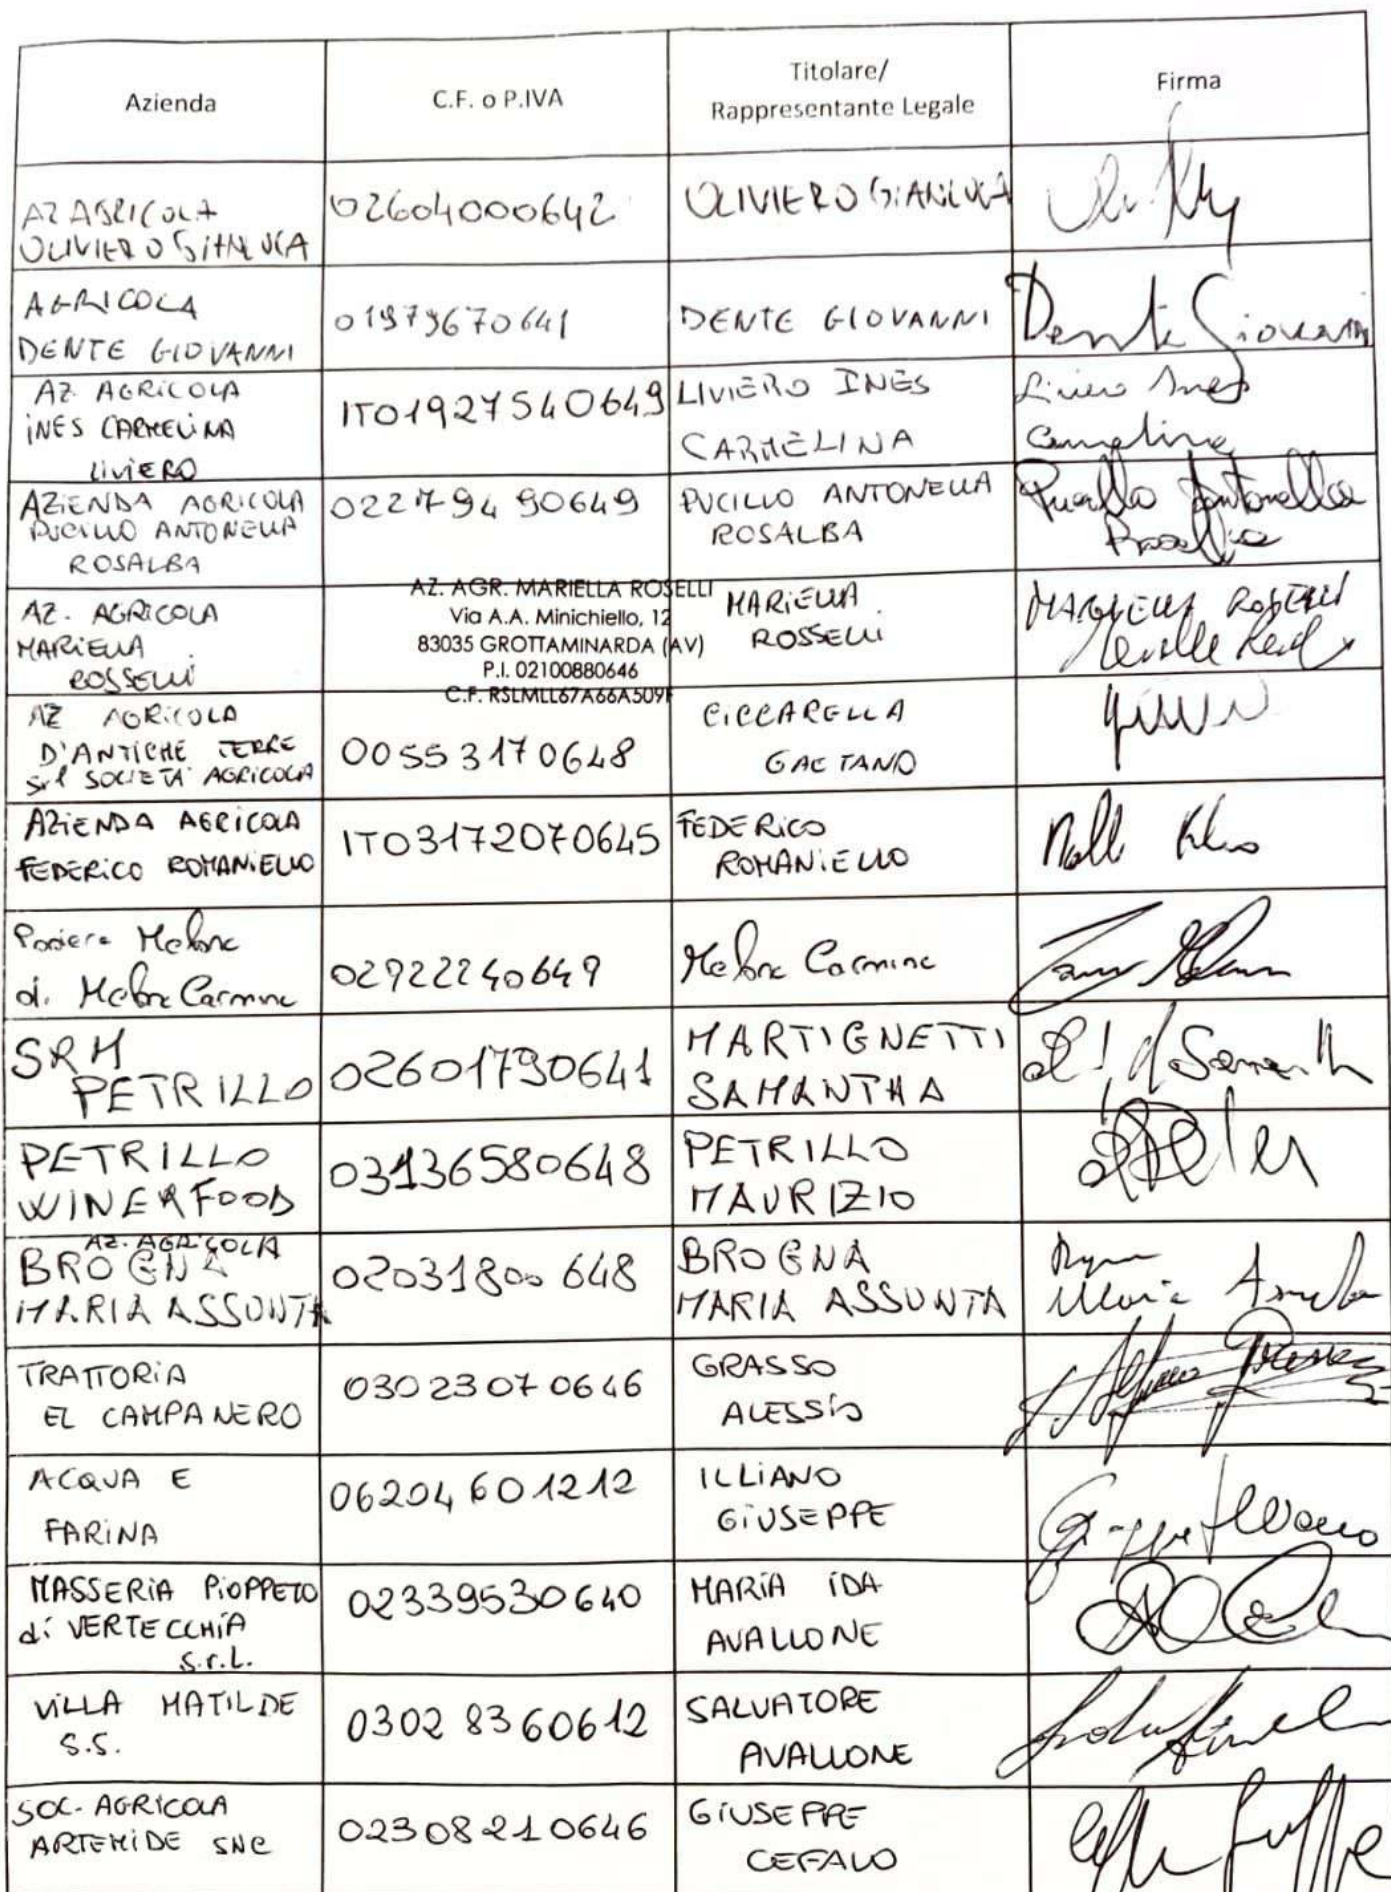 Azienda
C.F. o P.IVA
Titolare/
Rappresentante Legale
Firma
AZ AGRICOLA
OLIVIERO GIANLUCA
02604000642
OLIVIERO GIANLUCA
AGRICOLA
DENTE GIOVANNI
01979670641
DENTE GIOVANNI
Dente Giovanni
AZ. AGRICOLA
INES CARMELINA
LIVIERO
IT01927540649
LIVIERO INES
CARMELINA
Liviero Ines
Carmelina
AZIENDA AGRICOLA
PUCILLO ANTONELLA
ROSALBA
02279490649
PUCILLO ANTONELLA
ROSALBA
Pucillo Antonella
Rosalba
AZ. AGRICOLA
MARIELLA
ROSSELLI
AZ. AGR. MARIELLA ROSELLI
Via A.A. Minichiello, 12
83035 GROTTAMINARDA (AV)
P.I. 02100880646
C.F. RSLMLL67A66A509F
MARIELLA
ROSSELLI
MARIELLA ROSELLI
AZ AGRICOLA
D'ANTICHE TERRE
Srl SOCIETA' AGRICOLA
00553170648
CICCARELLA
GAETANO
AZIENDA AGRICOLA
FEDERICO ROMANIELLO
IT03172070645
FEDERICO
ROMANIELLO
Melone
di Melone Carmine
02922240649
Melone Carmine
SRM
PETRILLO
02601790641
MARTIGNETTI
SAMANTHA
PETRILLO
WINE&FOOD
03136580648
PETRILLO
MAURIZIO
AZ. AGRICOLA
BROGNA
MARIA ASSUNTA
02031800648
BROGNA
MARIA ASSUNTA
Maria Assunta
TRATTORIA
EL CAMPANERO
03023070646
GRASSO
ALESSIO
ACQUA E
FARINA
06204601212
ILLIANO
GIUSEPPE
Giuseppe Illiano
MASSERIA PIOPPETO
di VERTECCHIA
S.r.L.
02339530640
MARIA IDA
AVALLONE
VILLA MATILDE
S.S.
03028360612
SALVATORE
AVALLONE
SOC. AGRICOLA
ARTEMIDE SNC
02308210646
GIUSEPPE
CEFALO